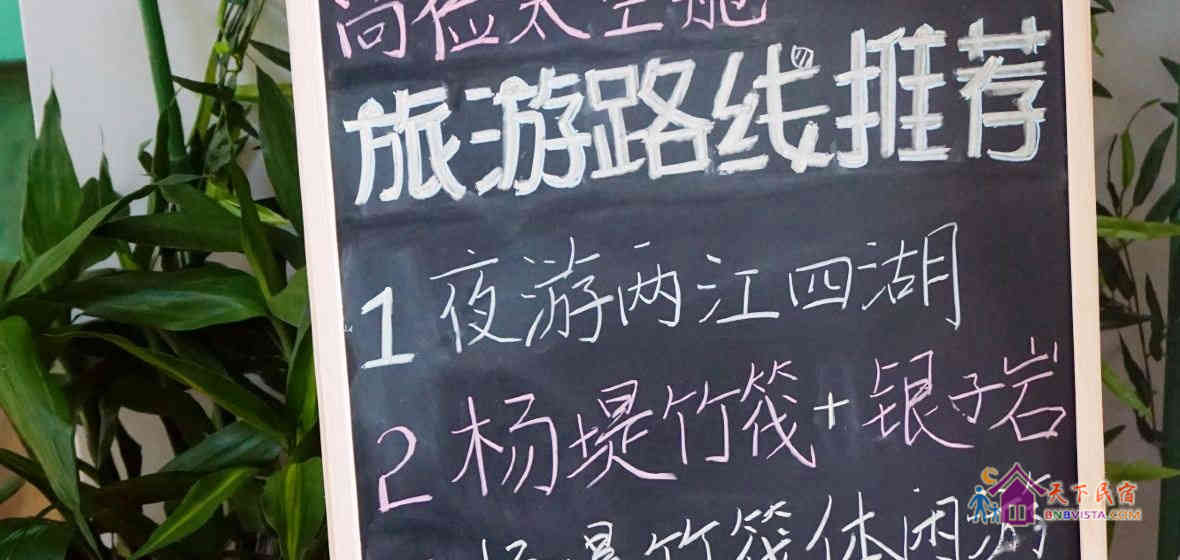 尚俭太空舱
旅游路线推荐
1 夜游两江四湖
2 杨堤竹筏+银子岩
杨堤竹筏休闲游
天下民宿
BNBVISTA.COM